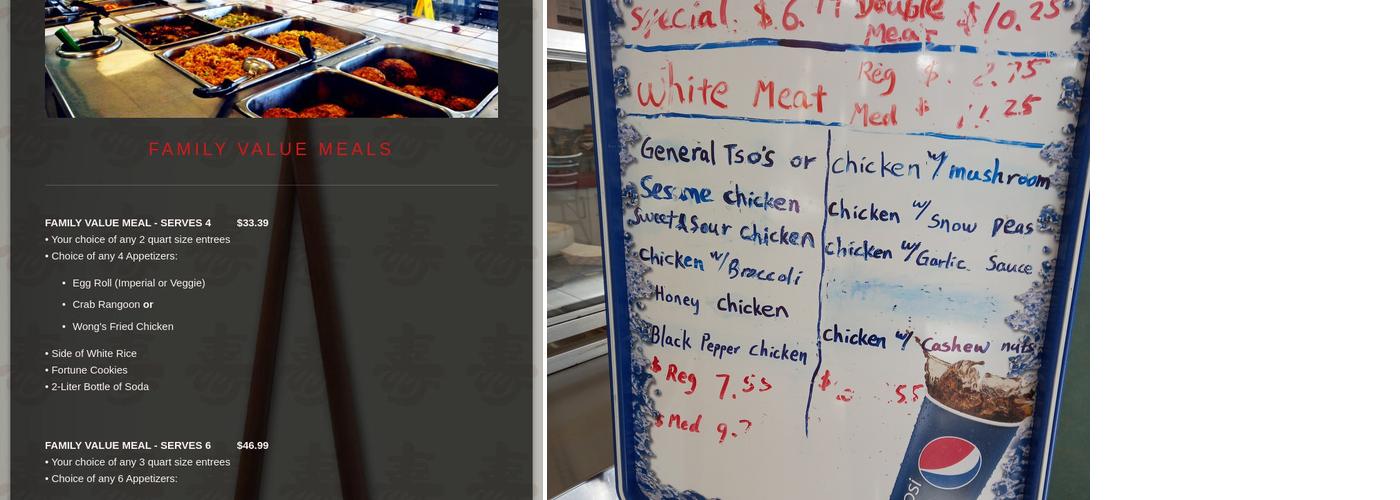 FAMILY VALUE MEALS
FAMILY VALUE MEAL - SERVES 4 $33.39
• Your choice of any 2 quart size entrees
• Choice of any 4 Appetizers:
• Egg Roll (Imperial or Veggie)
• Crab Rangoon or
• Wong's Fried Chicken
• Side of White Rice
• Fortune Cookies
• 2-Liter Bottle of Soda
FAMILY VALUE MEAL - SERVES 6 $46.99
• Your choice of any 3 quart size entrees
• Choice of any 6 Appetizers:
Special. Double
Meat $10.25
White Meat
Reg $
Med $
General Tso's or
Sesame chicken
Sweet & Sour chicken
Chicken w/ Broccoli
Honey chicken
Black Pepper chicken
$ Reg 7.55
$ Med 9.
chicken w/ mushroom
chicken w/ Snow peas
chicken w/ Garlic Sauce
chicken w/ Cashew nuts
$